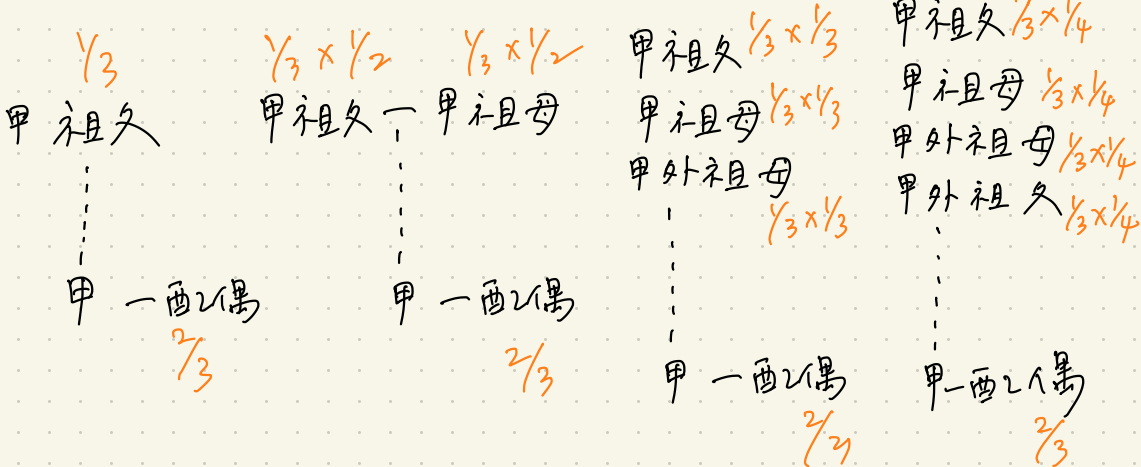 1/3
甲祖父
甲 一配偶
2/3
1/3 × 1/2 1/3 × 1/2
甲祖父 一 甲祖母
甲 一配偶
2/3
甲祖父 1/3 × 1/3
甲祖母 1/3 × 1/3
甲外祖母
1/3 × 1/3
甲 一配偶
甲祖父 1/3 × 1/4
甲祖母 1/3 × 1/4
甲外祖母 1/3 × 1/4
甲外祖父 1/3 × 1/4
甲一配偶
2/3